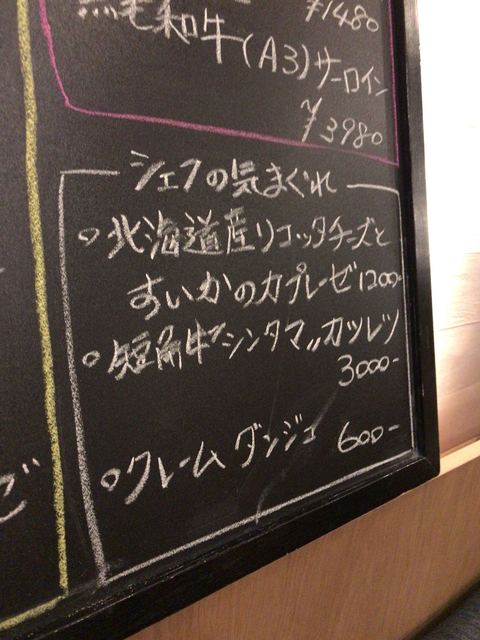 ¥1480
黒毛和牛(A3)サーロイン
¥3980
シェフの気まぐれ
・北海道産リコッタチーズと
すいかのカプレーゼ1200-
・短角牛"シンタマ"カツレツ
3000-
・クレームダンジュ 600-
ご